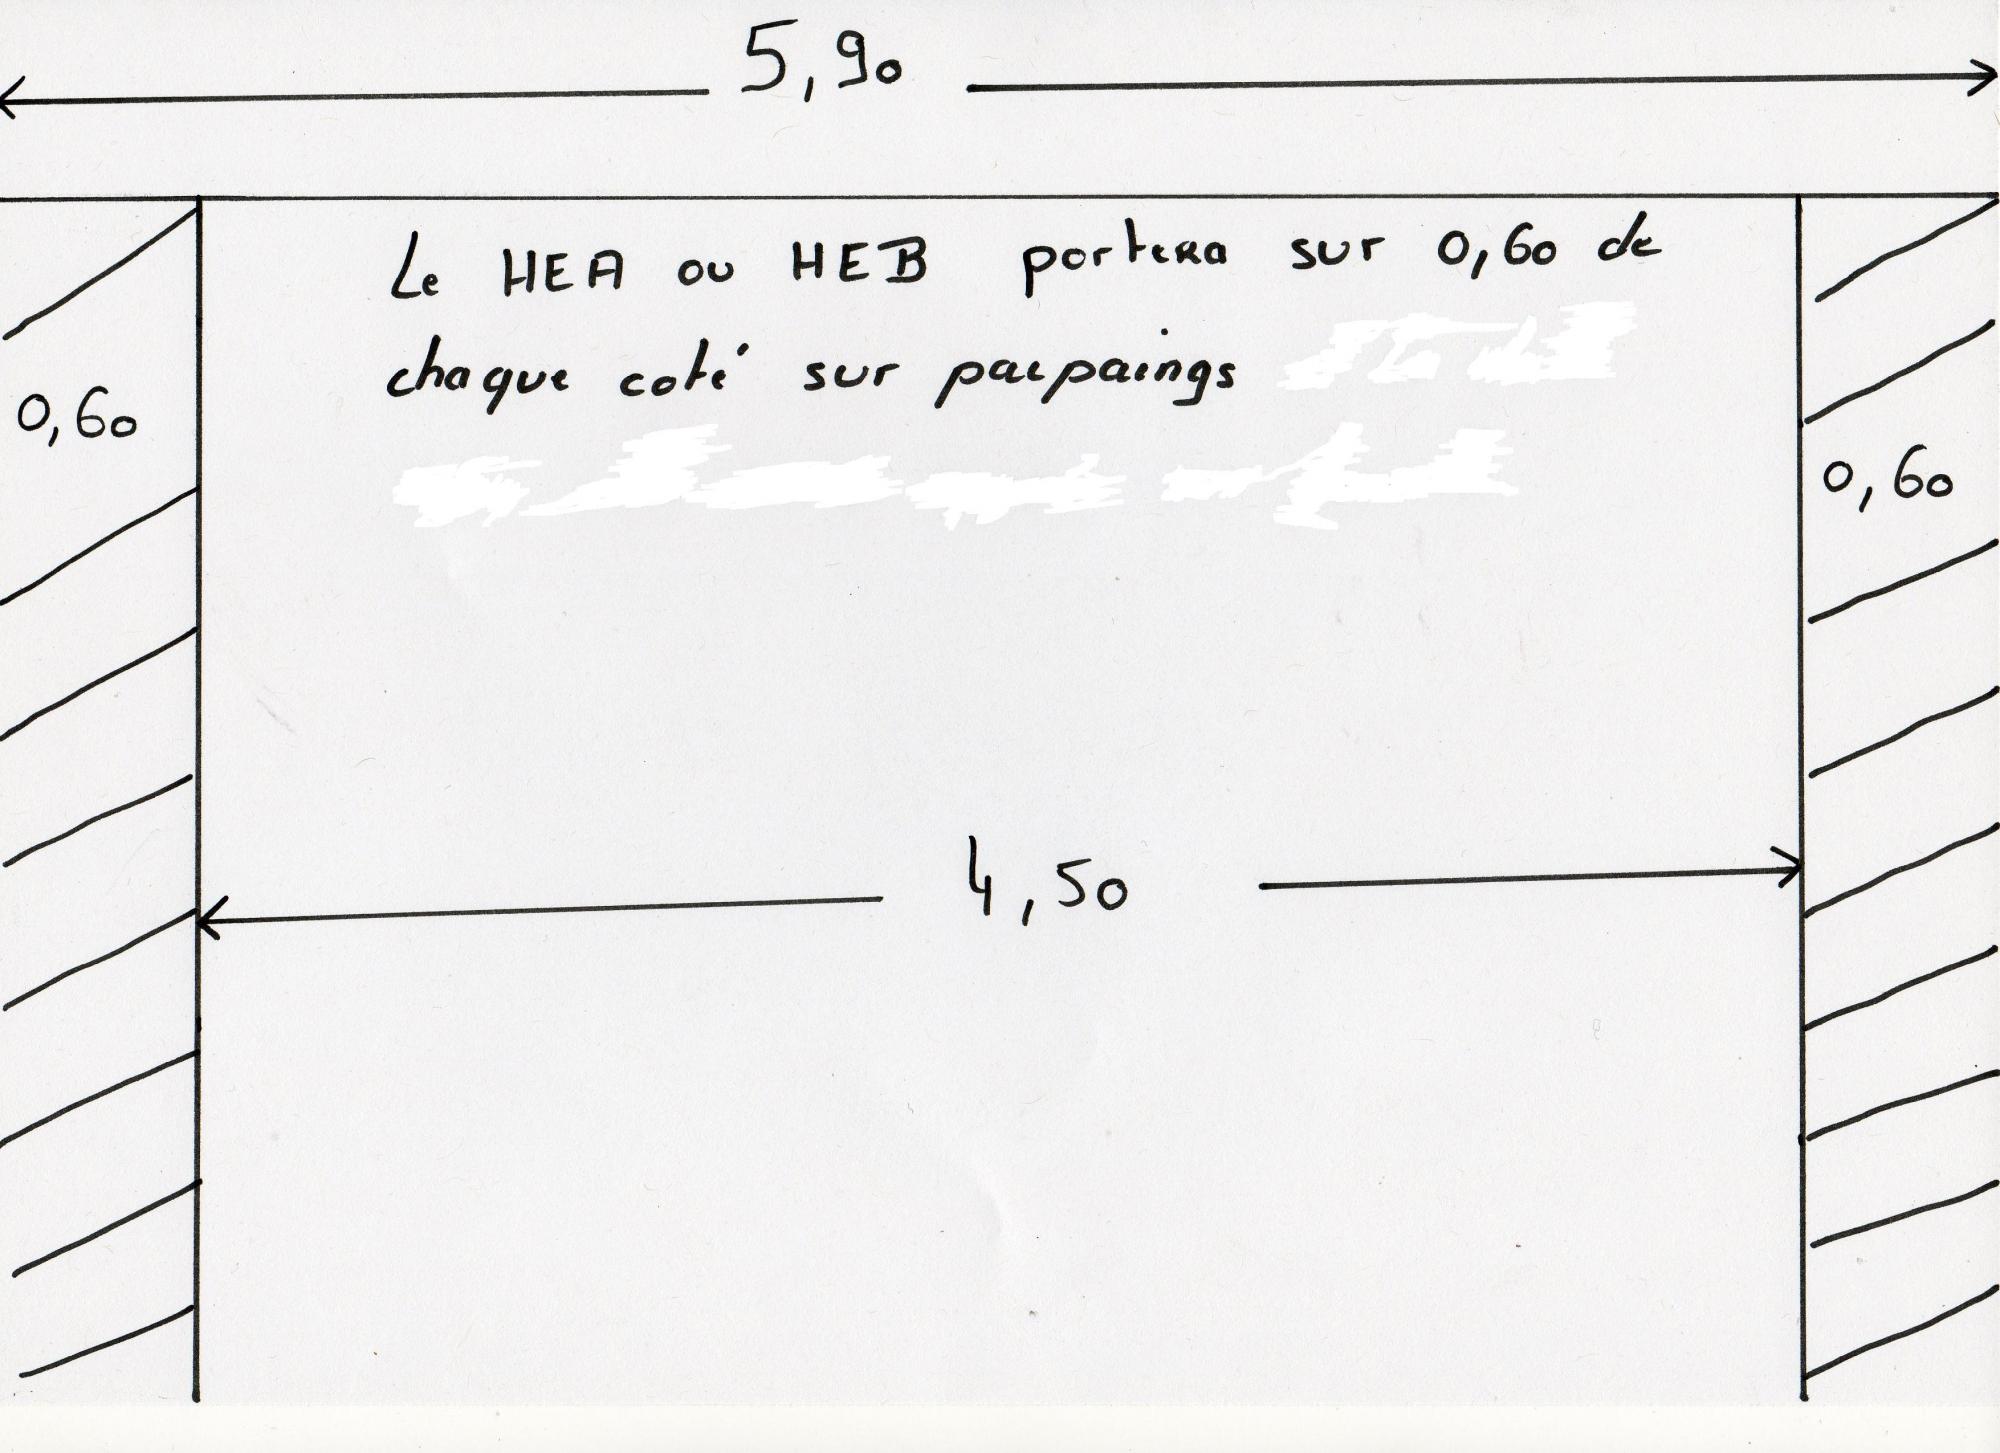 5,90
Le HEA ou HEB portera sur 0,60 de
chaque coté sur parpaings
0,60
0,60
4,50